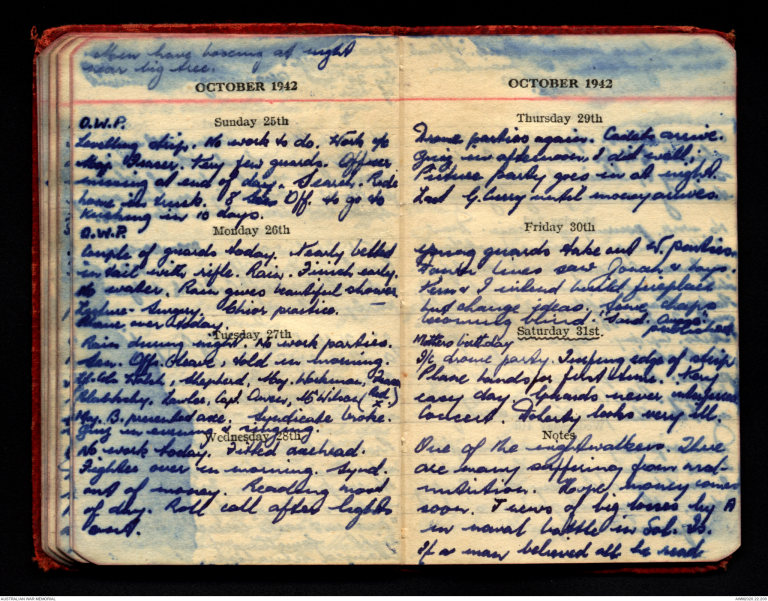 Men have boxing at night
near big tree.
OCTOBER 1942
O.W.P.
Sunday 25th
Levelling strip. No work to do. Work to
Maj. Fraser. Very few guards. Officer
missing at end of day. Search. Ride
home in truck. 8 Off. to go to
Kuching in 10 days.
O.W.P.
Monday 26th
Couple of guards today. Nearly belted
in tail with rifle. Rain. Finish early.
No water. Rain gives beautiful shower
Lecture - Surgery. Choir practice.
Plane over today.
Tuesday 27th
Rain during night. No work parties.
Sen. Offs. leave, told in morning.
Lt. Col. Walsh, Shepherd, Maj. Workman, Fraser
Blakey, Lawler, Capt. Carvin, Lt. Wilson (Bed.)
Maj. B. presented axe. Syndicate broke.
Ging in evening & singing.
Wednesday 28th
No work today. Fitted axehead.
Fighter over in morning. Synd.
out of money. Reading most
of day. Roll call after lights
out.
OCTOBER 1942
Thursday 29th
Drome parties again. Cadets arrive.
in afternoon. I did well.
Picture party goes in at night.
Last G. curry until money arrives.
Friday 30th
Young guards take out W. parties.
Fourth lines saw Jonah & boys.
& I intend build fireplace
but change ideas. Some chaps
becoming blind.
published
Saturday 31st.
Mothers birthday
I/c drome party. Turfing edge of strip
Plane lands for first time. Very
easy day. Guards never interfered
Concert. Doherty looks very ill.
Notes
One of the nightwalkers. There
are many suffering from mal-
nutrition. Hope money comes
soon. T news of big losses by A
in naval battle in Sol. Is.
If a man believed all he reads
AUSTRALIAN WAR MEMORIAL